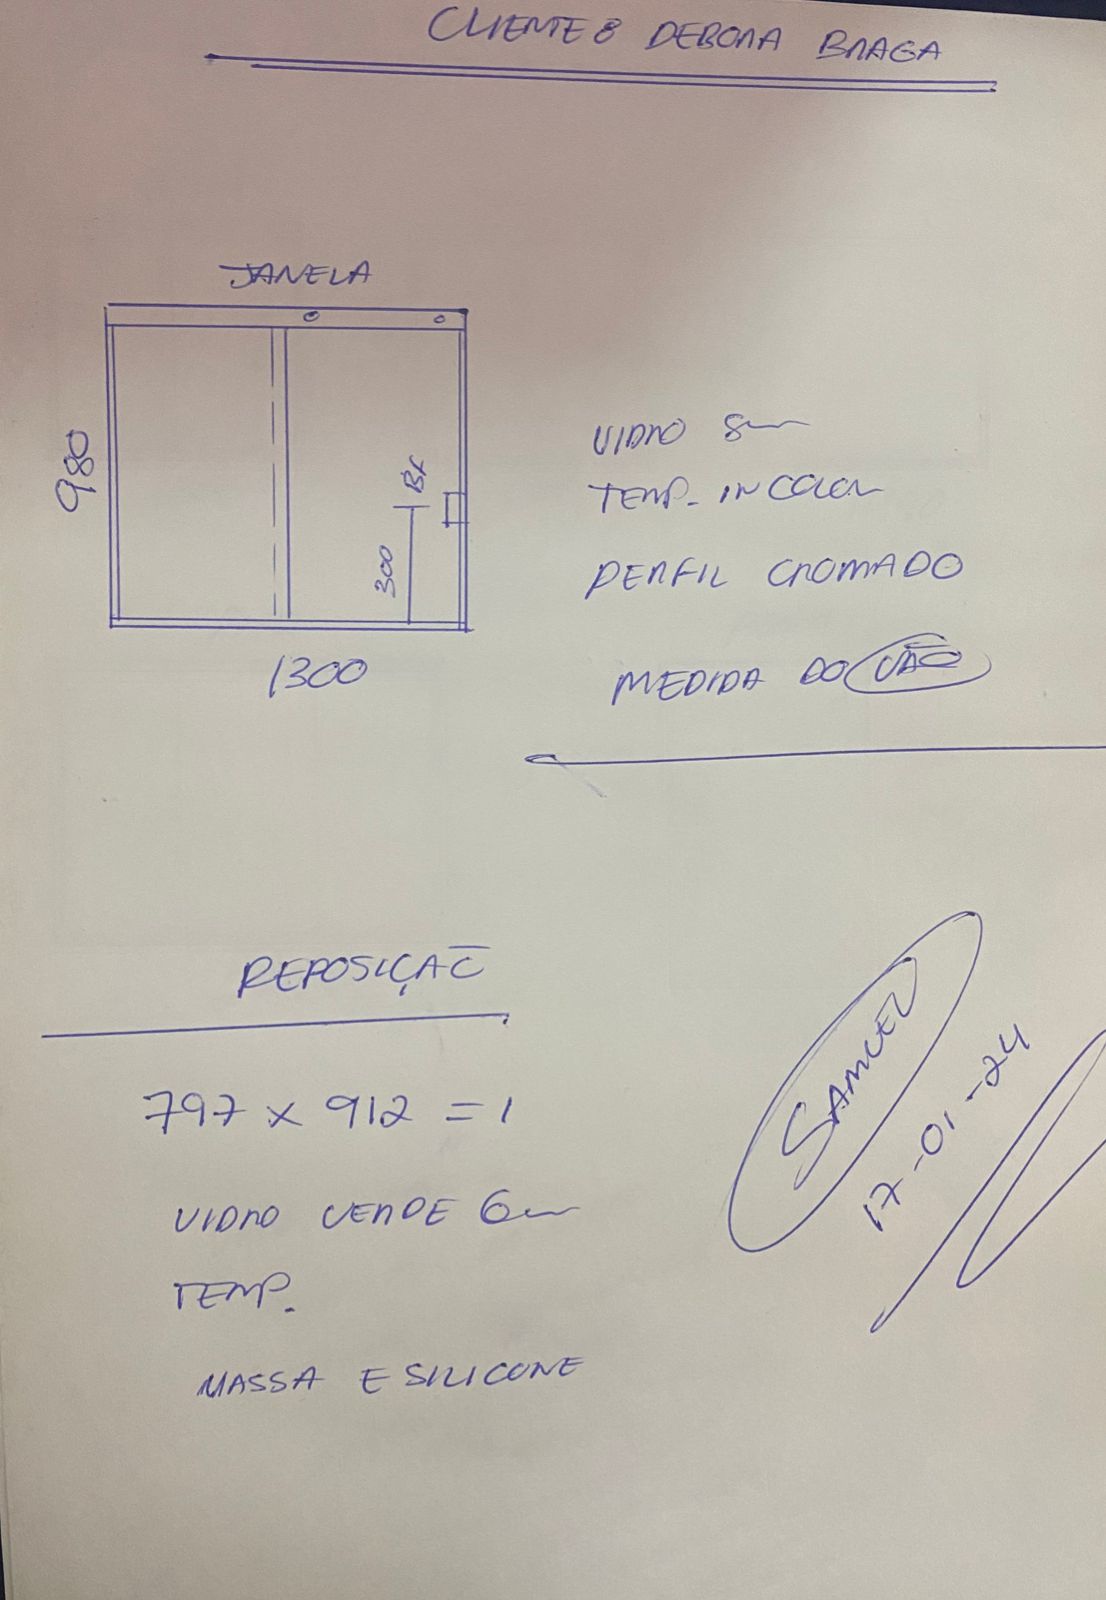 CLIENTE: DEBORA BRAGA
JANELA
980
BX
300
1300
VIDRO 8mm
TEMP. INCOLOR
PERFIL CROMADO
MEDIDA DO VÃO
REPOSIÇÃO
797 x 912 = 1
VIDRO VERDE 6mm
TEMP.
MASSA E SILICONE
SAMUEL
17-01-24